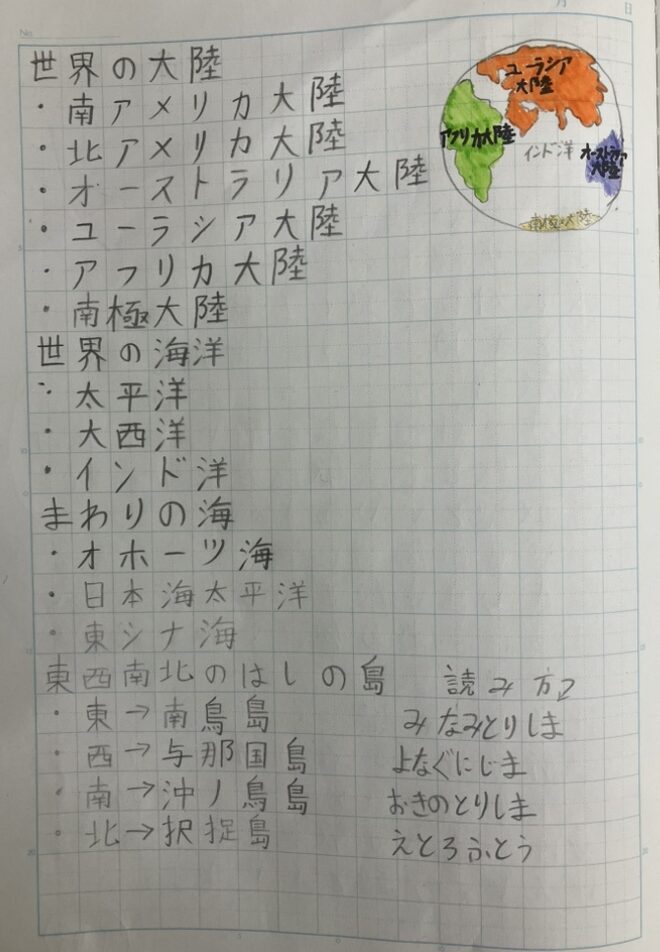 No.
月 日
世界の大陸
・南アメリカ大陸
・北アメリカ大陸
・オーストラリア大陸
・ユーラシア大陸
・アフリカ大陸
・南極大陸
ユーラシア
大陸
アフリカ大陸
インド洋
オーストラリア
大陸
南極大陸
世界の海洋
・太平洋
・大西洋
・インド洋
まわりの海
・オホーツ海
・日本海太平洋
・東シナ海
東西南北のはしの島 読み方
・東→南鳥島 みなみとりしま
・西→与那国島 よなぐにじま
・南→沖ノ鳥島 おきのとりしま
・北→択捉島 えとろふとう